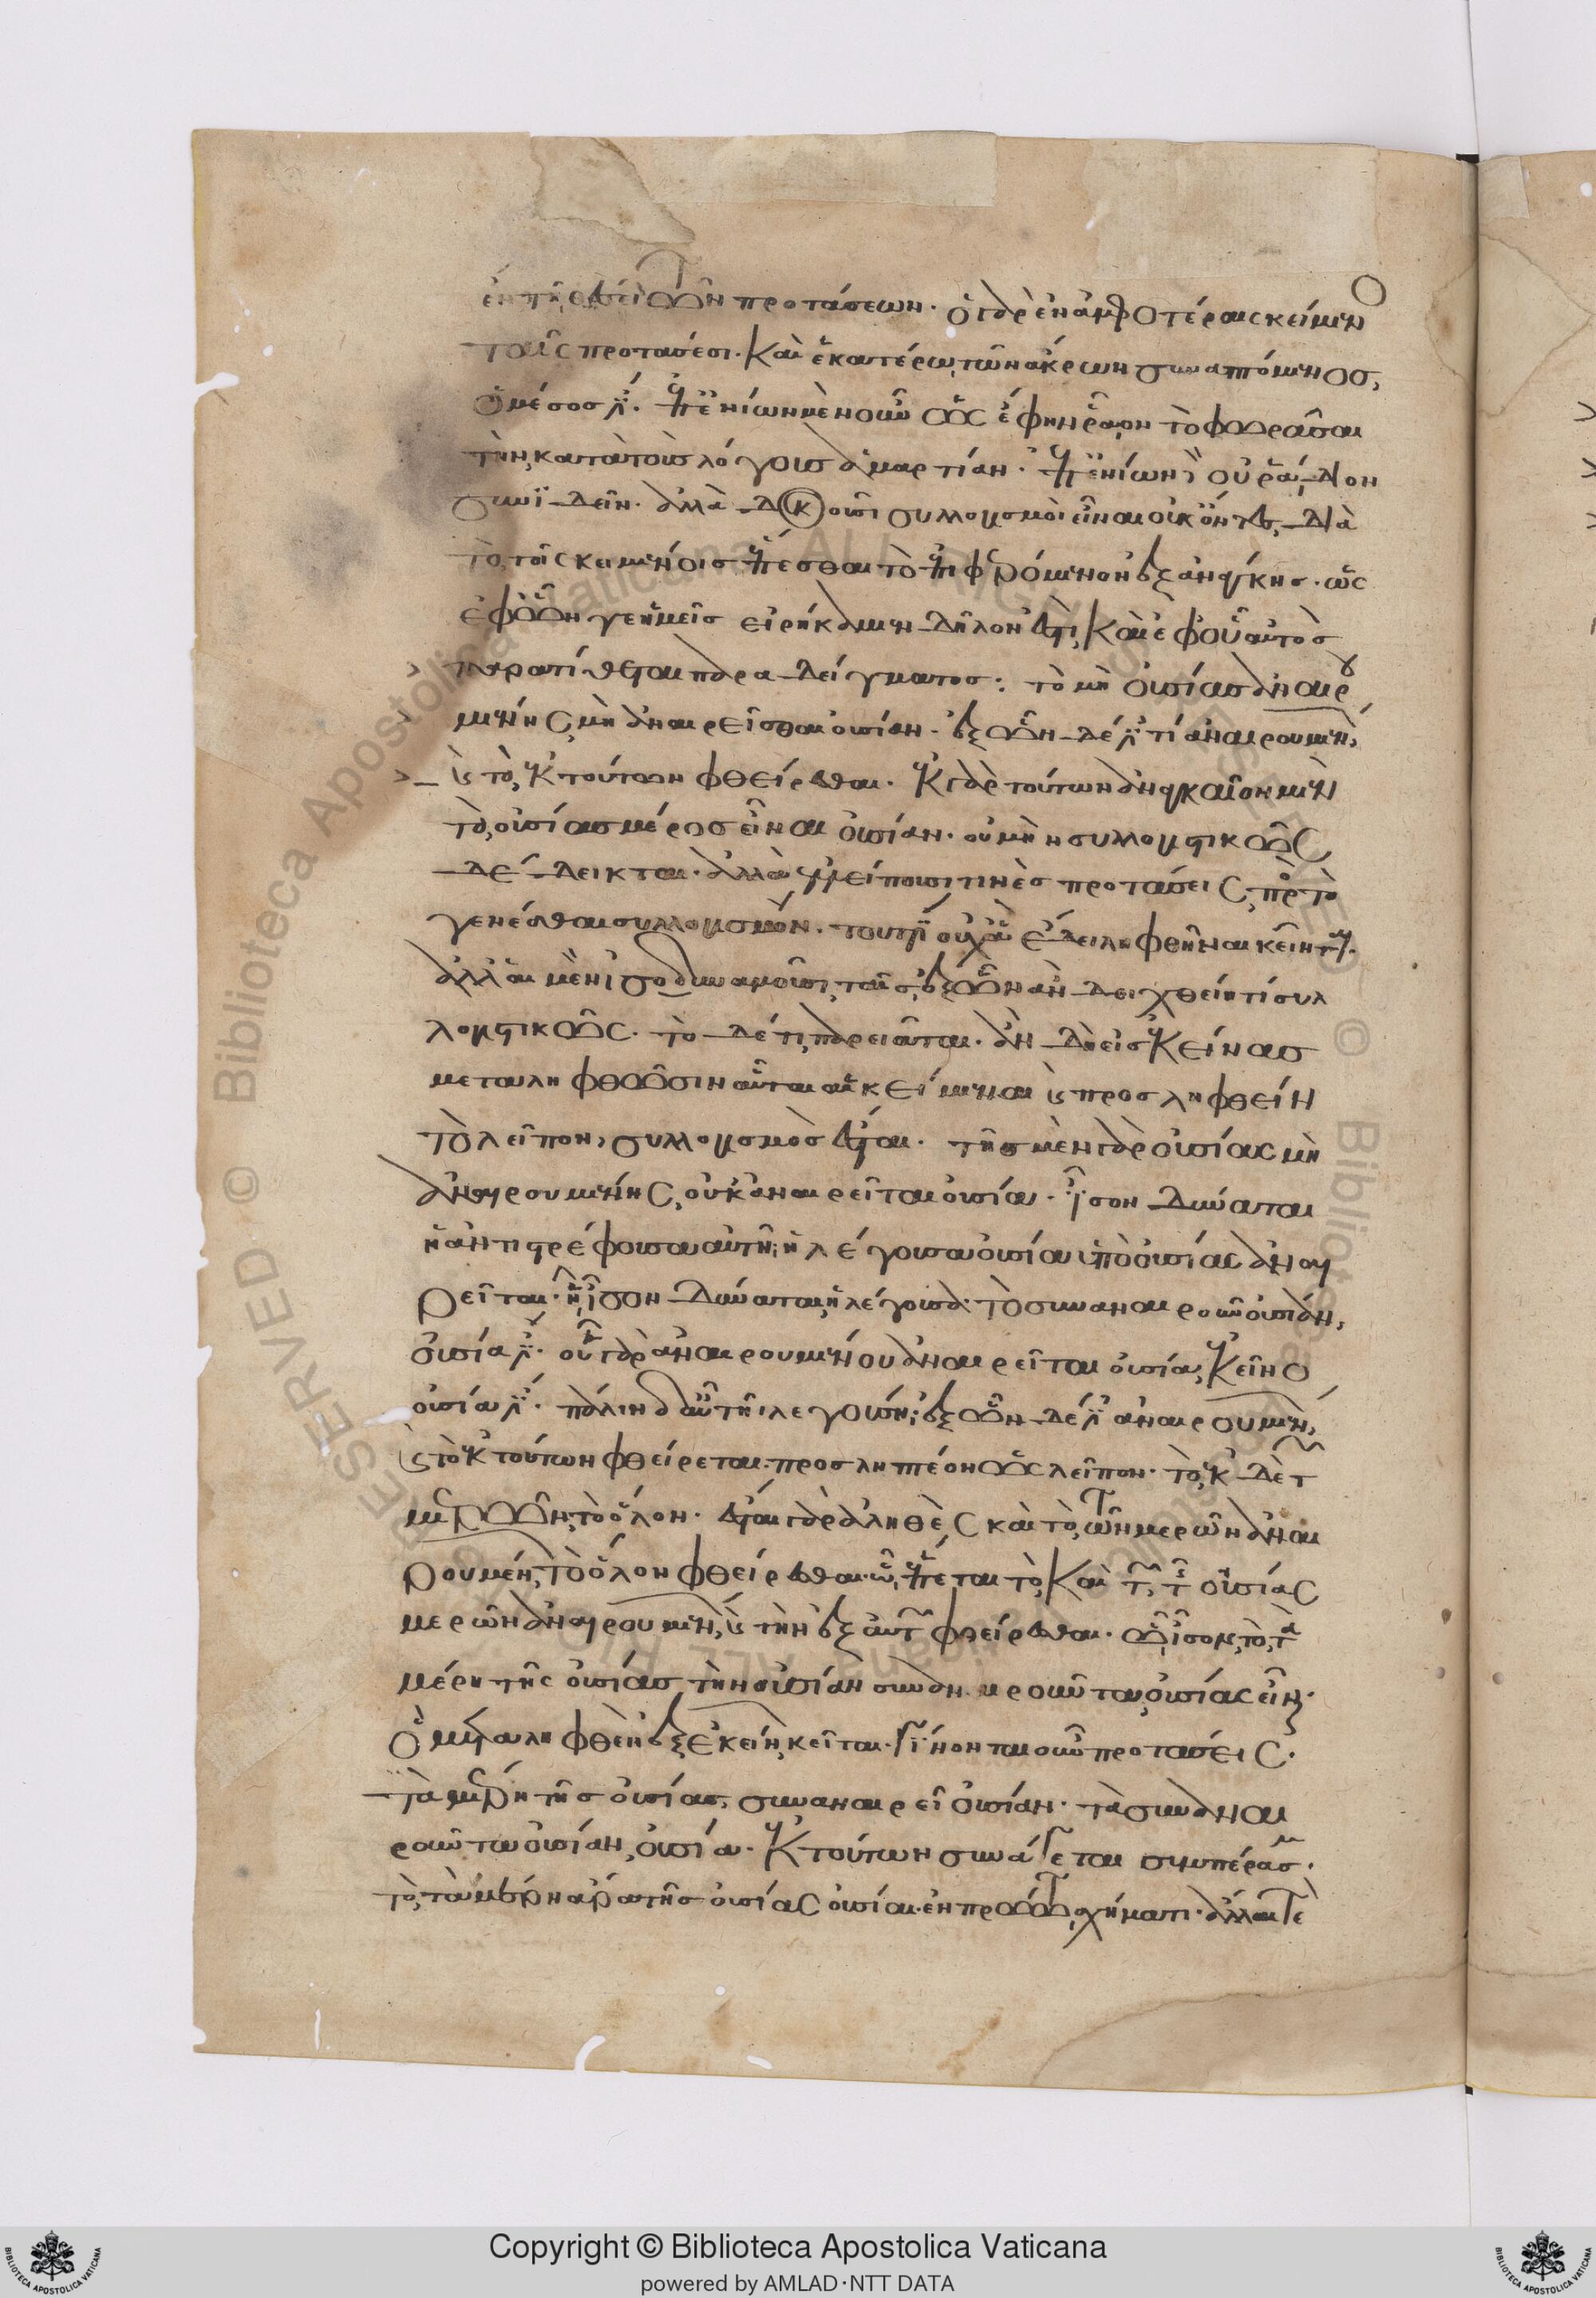 ἐν τῇ θέσει τῶν προτάσεων. ὁ γὰρ ἐν ἀμφοτέραις κείμενος
ταῖς προτάσεσι. καὶ ἑκατέρῳ τῶν ἄκρων συναπτόμενος,
ὁ μέσος ἐστί. ἐπ' ἐνίων μὲν οὖν ὡς ἔφην ῥάιον τὸ φωρᾶσαι
τὴν κατὰ τοὺς λόγους ἁμαρτίαν. ἐπ' ἐνίων δὲ οὐ ῥάιδιον
συνϊδεῖν. ἀλλὰ δοκοῦσι συλλογισμοὶ εἶναι οὐκ ὄντες, διὰ
τὸ τοῖς κειμένοις ἕπεσθαι τὸ ἐπιφερόμενον ἐξ ἀνάγκης. ὡς
ἐφ' ὧν γε ἡμεῖς εἰρήκαμεν δῆλον ἔτι καὶ ἐφ' οὗ αὐτὸς
παρατίθεται παραδείγματος: τὸ μὴ οὐσίας ἀναιρου
μένης μὴ ἀναιρεῖσθαι οὐσίαν. ἐξ ὧν δέ ἐστί τι ἀναιρουμένων,
καὶ τὸ ἐκ τούτων φθείρεσθαι. ἐκ γὰρ τούτων ἀναγκαῖον μὲν
τὸ οὐσίας μέρος εἶναι οὐσίαν. οὐ μὴν συλλογιστικῶς
δέδεικται. ἀλλὰ ἐλλείπουσι τινὲς προτάσεις, πρὸς τὸ
γενέσθαι συλλογισμόν. τουτέστι οὐχ ἃς ἔδει ληφθῆναι κεῖνται.
ἀλλ' αἱ μὲν ἰσοδυναμοῦσι, ταῖς ἐξ ὧν ἂν δειχθείη τί συλ
λογιστικῶς. τὸ δέ τι, παρεῖται. ἂν δὴ εἰς ἐκείνας
μεταληφθῶσιν αὗται αἱ κείμεναι καὶ προσληφθείη
τὸ λεῖπον, συλλογισμὸς ἔσται. τῆς μὲν γὰρ οὐσίας μὴ
ἀναιρουμένης, οὐκ ἀναιρεῖται οὐσία. ἴσον δύναται
ἡ ἀντιστρέφουσα αὐτῆι, ἡ λέγουσα οὐσία ὑπὸ οὐσίας ἀναι
ρεῖται. ἧι ἴσον δύναται, ἡ λέγουσα τὸ συναναιροῦν οὐσίαν,
οὐσία ἐστί. οὗ γὰρ ἀναιρουμένου ἀναιρεῖται οὐσία, ἐκεῖνο
οὐσία ἐστί. πάλιν δ' αὖ τῆι λεγούσηι, ἐξ ὧν δέ ἐστι ἀναιρουμένων,
καὶ τὸ ἐκ τούτων φθείρεται. προσληπτέον ὡς λεῖπον. τὸ ἐκ δὲ τῶν
μερῶν, τὸ ὅλον. ἔσται γὰρ ἀληθὲς καὶ τὸ τῶν μερῶν ἀναι
ρουμένων, τὸ ὅλον φθείρεσθαι. ὧι ἕπεται τὸ καὶ τῶν τῆς οὐσίας
μερῶν ἀναιρουμένων, καὶ τὴν ἐξ αὐτῶν φθείρεσθαι. ὧι ἴσον, τὸ τὰ
μέρη τῆς οὐσίας τὴν οὐσίαν συναναιροῦντα, οὐσίας εἶναι.
ὃ μεταληφθὲν ἐξ ἐκείνων κεῖται. γίνονται οὖν προτάσεις.
τὰ μέρη τῆς οὐσίας, συναναιρεῖ οὐσίαν. τὰ συναναι
ροῦντα οὐσίαν, οὐσία. ἐκ τούτων συνάγεται συμπέρασμα.
τὸ, τὰ μέρη ἄρα τῆς οὐσίας οὐσίαι. ἐν πρώτωι σχήματι. ἀλλὰ γε